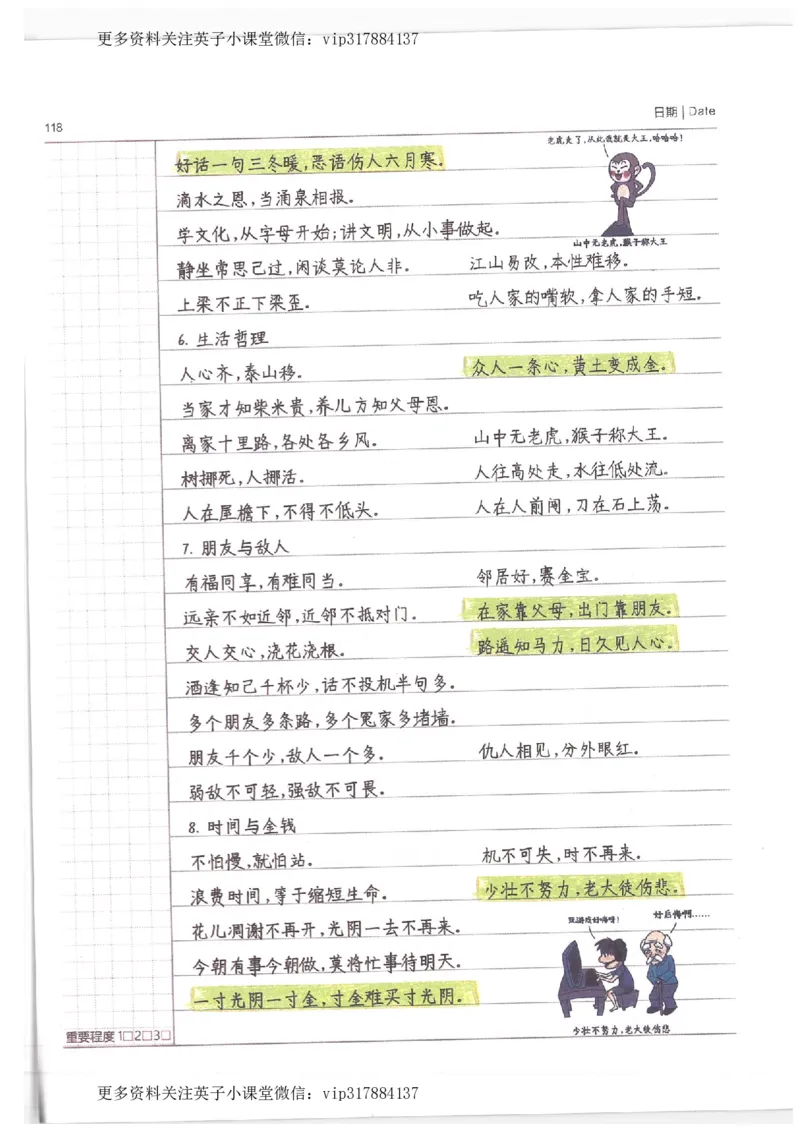 更多资料关注英子小课堂微信：vip317884137
日期 | Date
118
老虎走了，从此我就是大王，哈哈哈！
好话一句三冬暖，恶语伤人六月寒。
滴水之恩，当涌泉相报。
学文化，从字母开始；讲文明，从小事做起。
山中无老虎，猴子称大王
静坐常思己过，闲谈莫论人非。 江山易改，本性难移。
上梁不正下梁歪。 吃人家的嘴软，拿人家的手短。
6. 生活哲理
人心齐，泰山移。 众人一条心，黄土变成金。
当家才知柴米贵，养儿方知父母恩。
离家十里路，各处各乡风。 山中无老虎，猴子称大王。
树挪死，人挪活。 人往高处走，水往低处流。
人在屋檐下，不得不低头。 人在人前闯，刀在石上荡。
7. 朋友与敌人
有福同享，有难同当。 邻居好，赛金宝。
远亲不如近邻，近邻不抵对门。 在家靠父母，出门靠朋友。
交人交心，浇花浇根。 路遥知马力，日久见人心。
酒逢知己千杯少，话不投机半句多。
多个朋友多条路，多个冤家多堵墙。
朋友千个少，敌人一个多。 仇人相见，分外眼红。
弱敌不可轻，强敌不可畏。
8. 时间与金钱
不怕慢，就怕站。 机不可失，时不再来。
浪费时间，等于缩短生命。 少壮不努力，老大徒伤悲。
花儿凋谢不再开，光阴一去不再来。
玩游戏好嗨呀！ 好后悔啊……
今朝有事今朝做，莫将忙事待明天。
一寸光阴一寸金，寸金难买寸光阴。
少壮不努力，老大徒伤悲
重要程度 1□2□3□
更多资料关注英子小课堂微信：vip317884137